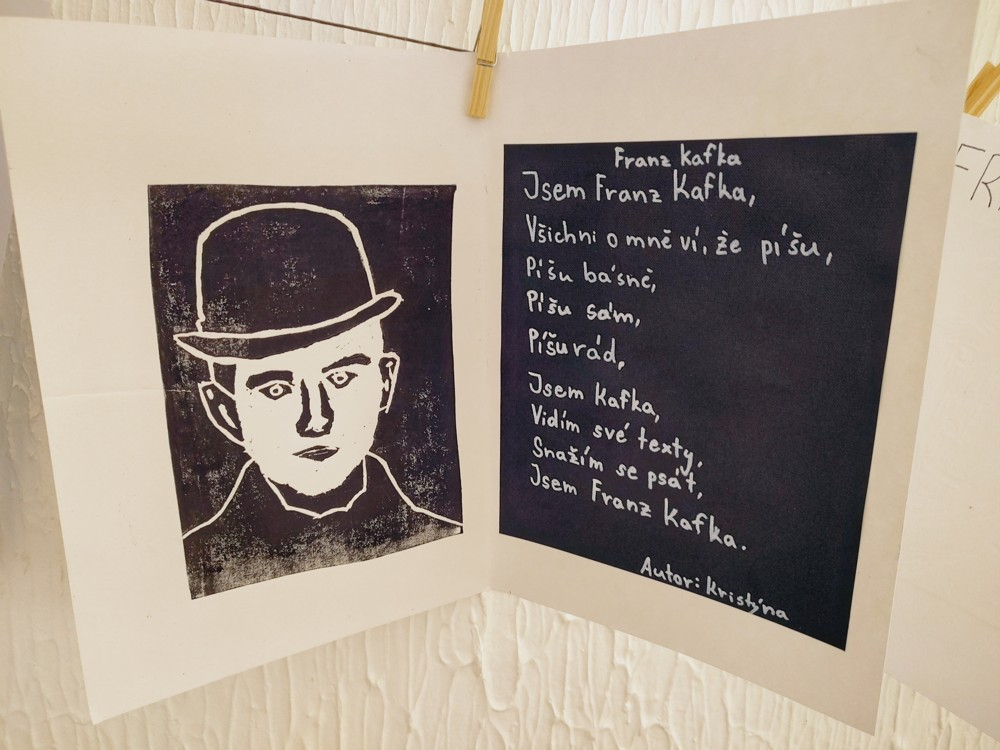 Franz Kafka
Jsem Franz Kafka,
Všichni o mně ví, že píšu,
Píšu básně,
Píšu sám,
Píšu rád,
Jsem Kafka,
Vidím své texty,
Snažím se psát,
Jsem Franz Kafka.
Autor: Kristýna